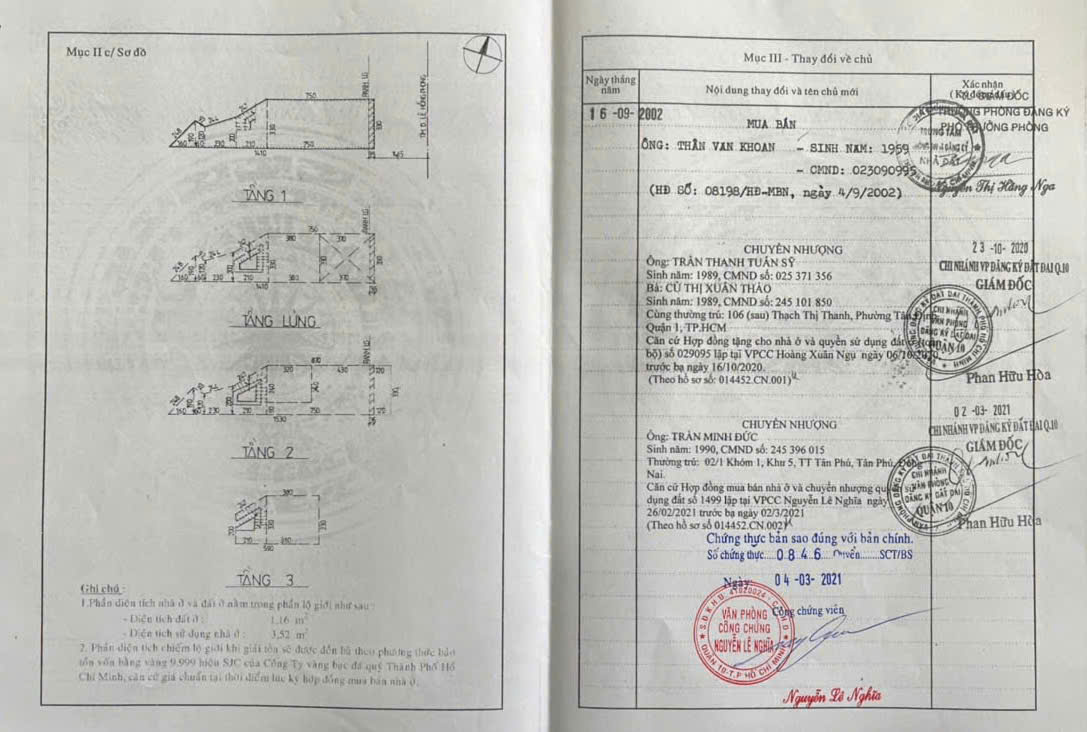 Mục II c/ Sơ đồ
RANH LG
TIM Đ. LÊ HỒNG PHONG
750
330
210
230
1410
TẦNG 1
RANH LG
750
380
370
330
160
230
210
380
370
1410
TẦNG LỬNG
RANH LG
870
320
430
120
340
160
230
210
750
120
1530
TẦNG 2
380
330
210
590
TẦNG 3
Ghi chú :
1.Phần diện tích nhà ở và đất ở nằm trong phần lộ giới như sau :
- Diện tích đất ở : 1,16 m²
- Diện tích sử dụng nhà ở : 3,52 m²
2. Phần diện tích chiếm lộ giới khi giải tỏa sẽ được đền bù theo phương thức bảo
tồn vốn bằng vàng 9.999 hiệu SJC của Công Ty vàng bạc đá quý Thành Phố Hồ
Chí Minh, căn cứ giá chuẩn tại thời điểm lúc ký hợp đồng mua bán nhà ở.
Mục III - Thay đổi về chủ
Ngày tháng
năm
Nội dung thay đổi và tên chủ mới
Xác nhận
GIÁM ĐỐC
TRƯỞNG PHÒNG ĐĂNG KÝ
PHÓ TRƯỞNG PHÒNG
16-09-2002
MUA BÁN
ÔNG: THÂN VAN KHOAN - SINH NĂM: 1959
- CMND: 023090999
(HĐ SỐ: 08198/HĐ-MBN, ngày 4/9/2002)
TRUNG TÂM
NHÀ ĐẤT
Nguyễn Thị Hằng Nga
CHUYỂN NHƯỢNG
Ông: TRẦN THANH TUẤN SỸ
Sinh năm: 1989, CMND số: 025 371 356
Bà: CÙ THỊ XUÂN THẢO
Sinh năm: 1989, CMND số: 245 101 850
Cùng thường trú: 106 (sau) Thạch Thị Thanh, Phường Tân Định,
Quận 1, TP.HCM
Căn cứ Hợp đồng tặng cho nhà ở và quyền sử dụng đất ở (toàn
bộ) số 029095 lập tại VPCC Hoàng Xuân Ngụ ngày 06/10/2020
trước bạ ngày 16/10/2020.
(Theo hồ sơ số: 014452.CN.001)
23-10-2020
CHI NHÁNH VP ĐĂNG KÝ ĐẤT ĐAI Q.10
GIÁM ĐỐC
VĂN PHÒNG ĐĂNG KÝ ĐẤT ĐAI THÀNH PHỐ HỒ CHÍ MINH
CHI NHÁNH
VĂN PHÒNG
ĐĂNG KÝ ĐẤT ĐAI
QUẬN 10
Phan Hữu Hòa
CHUYỂN NHƯỢNG
Ông: TRẦN MINH ĐỨC
Sinh năm: 1990, CMND số: 245 396 015
Thường trú: 02/1 Khóm 1, Khu 5, TT Tân Phú, Tân Phú, Đồng
Nai.
Căn cứ Hợp đồng mua bán nhà ở và chuyển nhượng quyền sử
dụng đất số 1499 lập tại VPCC Nguyễn Lê Nghĩa ngày
26/02/2021 trước bạ ngày 02/3/2021
(Theo hồ sơ số 014452.CN.002)
02-03-2021
CHI NHÁNH VP ĐĂNG KÝ ĐẤT ĐAI Q.10
GIÁM ĐỐC
CHI NHÁNH
VĂN PHÒNG
ĐĂNG KÝ ĐẤT ĐAI
QUẬN 10
Phan Hữu Hòa
Chứng thực bản sao đúng với bản chính.
Số chứng thực.....0846...Quyển.......SCT/BS
Ngày: 04-03-2021
Công chứng viên
VĂN PHÒNG
CÔNG CHỨNG
NGUYỄN LÊ NGHĨA
QUẬN 10-T.P HỒ CHÍ MINH
Nguyễn Lê Nghĩa